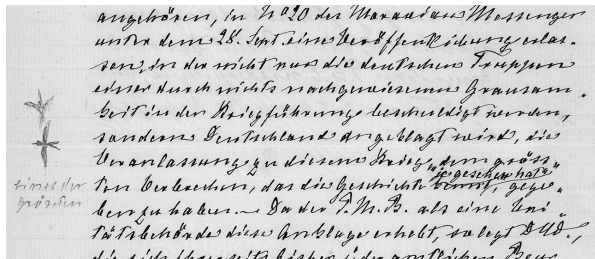 angehören, in No 20 des Moravian Messenger
unter dem 28. Sept. eine Veröffentlichung erlas-
sen, in der nicht nur die deutschen Truppen
einer durch nichts nachgewiesenen Grausam-
keit in der Kriegführung beschuldigt werden,
sondern Deutschland angeklagt wird, die
Veranlassung zu diesem Krieg, dem gröss-
ten Verbrechen, das die Geschichte kennt, gege-
je gesehen hat
ben zu haben. — Da der P.M.B. als eine Uni-
tätsbehörde diese Anklage erhebt, so legt DUD.,
eines der
grössten